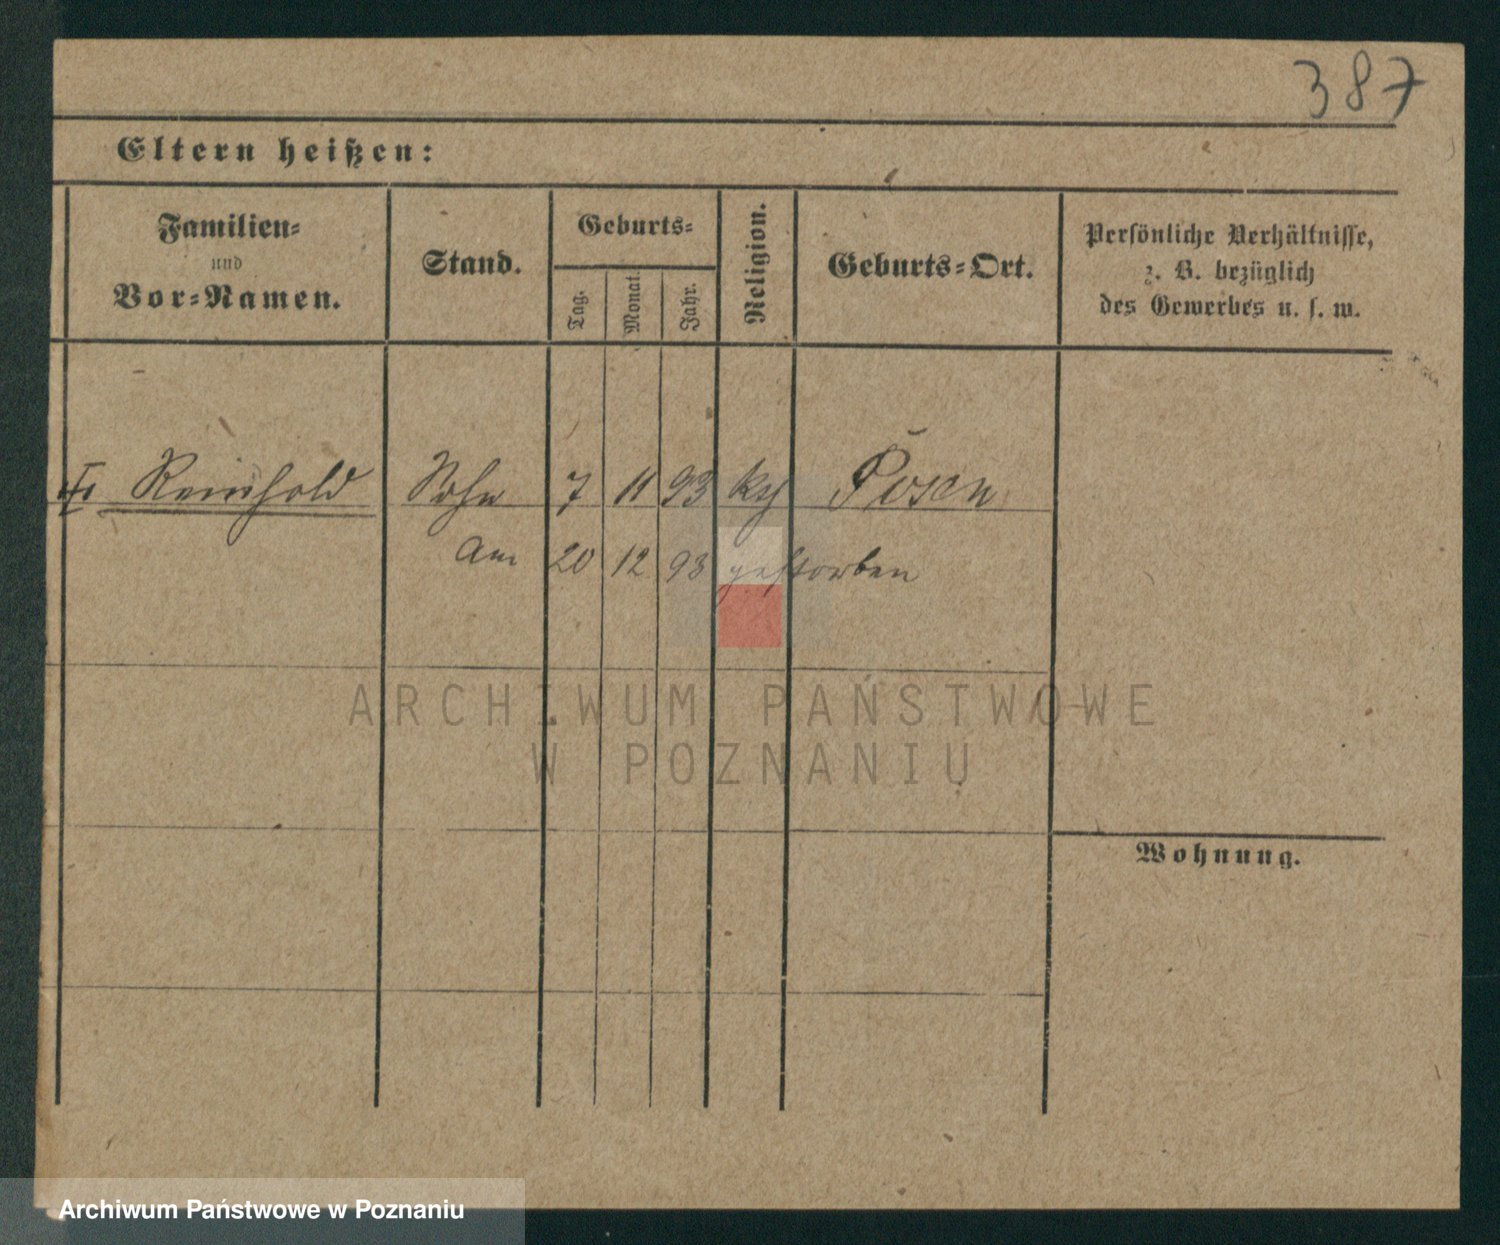 387
Eltern heißen:
Familien-
und
Vor-Namen.
Stand.
Geburts-
Tag.
Monat.
Jahr.
Religion.
Geburts-Ort.
Persönliche Verhältnisse,
z. B. bezüglich
des Gewerbes u. s. w.
Reinhold Sohn 7 11 93 kth Posen
Am 20 12 93 gestorben
ARCHIWUM PAŃSTWOWE
W POZNANIU
Wohnung.
Archiwum Państwowe w Poznaniu